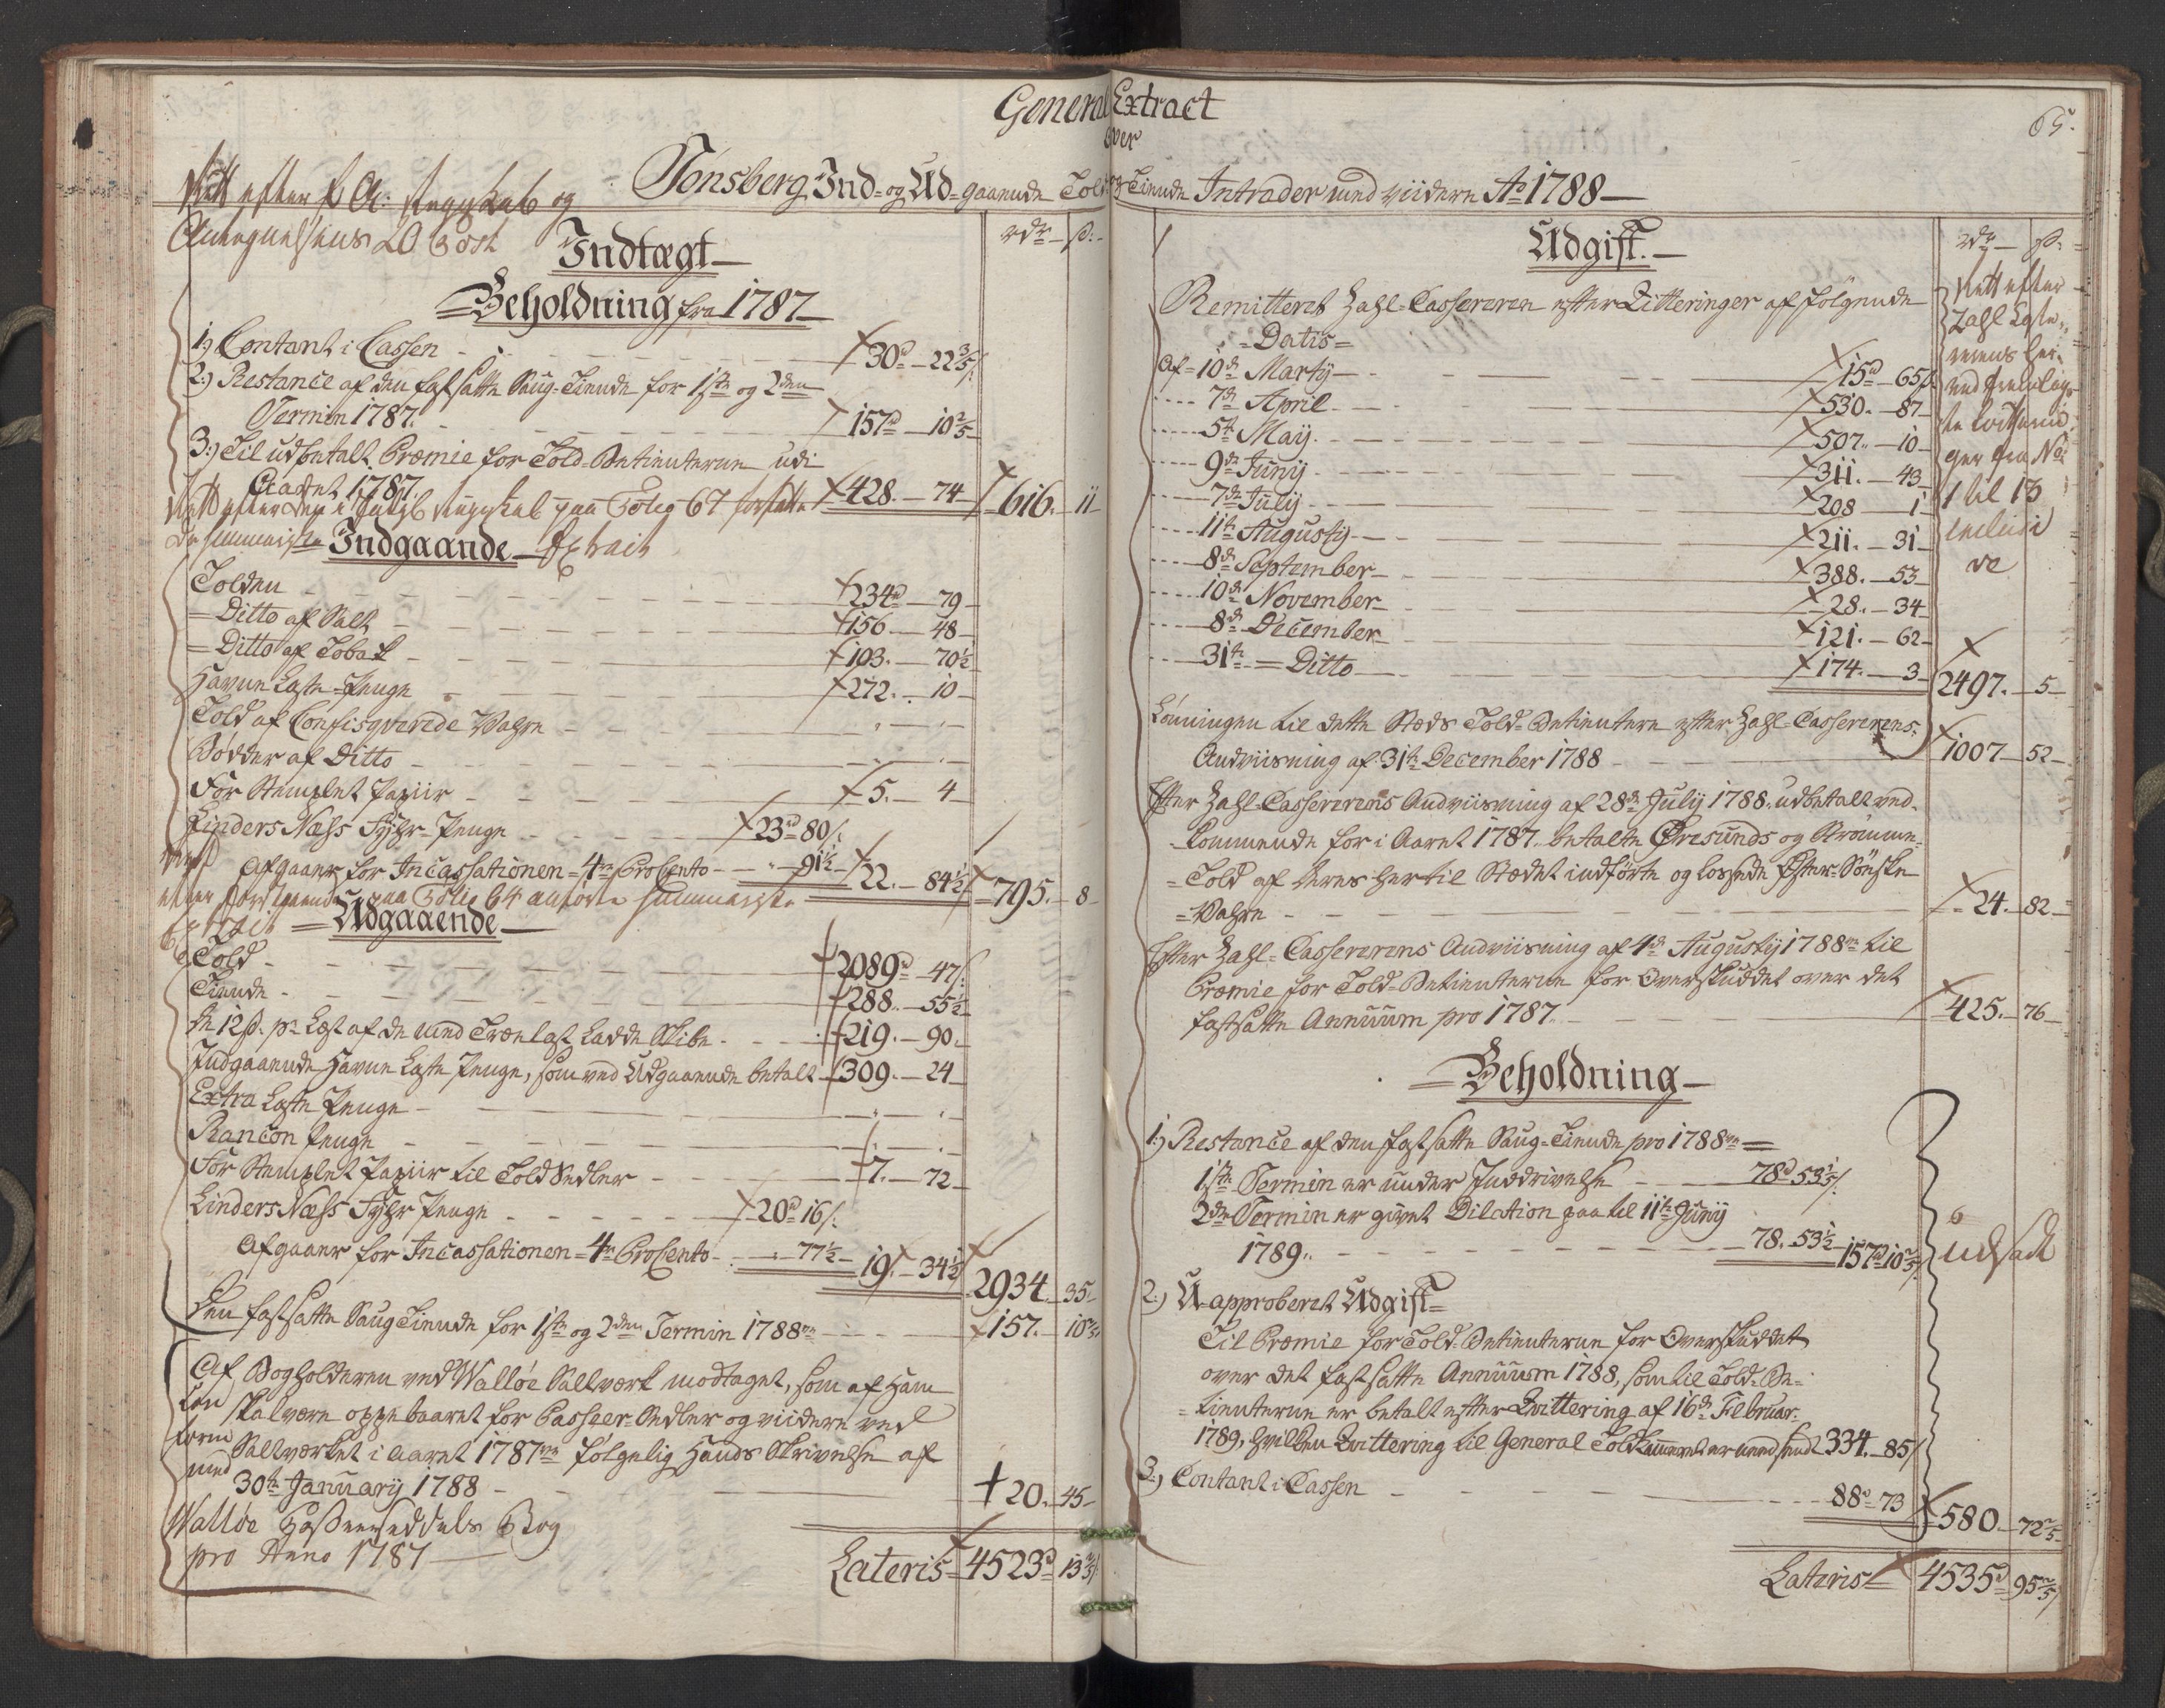 General Extract
over
65.
Tønsberg Ind- og Ud-gaaende Told og Tiende Intrader med viidere Ao 1788
Rett efter f A: Regnskab og
20 Post
rdr ß:
Indtægt
Beholdning fra 1787
1) Contant i Cassen 30d 22 3/5ß
2) Restance af den fastsatte Saug-Tiende for 1ste og 2den
Termin 1787. 157d 10 2/5
3) Til udbetalt Præmie for Told-Betienterne udi
Aaret 1787. 428. 74 616. 11
Rett efter den i Regnskab paa Folio 67
summariske Extract
Indgaaende
Tolden 234d 79
Ditto af Salt 156 48
Ditto af Tobak 103. 70 1/2
Havne Laste-Penge 272. 10
Told af Confisqverede Vahre
Bødder af Ditto
For Stemplet Papiir 5. 4
Linders Næss Fyhr-Penge 23d 80ß
Afgaaer for Incassationen 4re ProCento 91 1/2 22. 84 1/2 795. 8
efter forestaaende paa Folio 64 anførte summariske
Extract
Udgaaende
Told 2089d 47ß
Tiende 288. 55 1/2
De 12ß. pr Læst af de med Trælast Ladde Skibe 219. 90.
Indgaaende Havne Laste Penge, som ved Udgaaende betalt 309. 24
Extra Laste Penge
Rancon Penge
For Stemplet Papiir til Told Sedler 7. 72
Linders Næss Fyhr Penge 20d 16ß
Afgaaer for Incassationen 4re ProCento 77 1/2 19. 34 1/2 2934 35
Den fastsatte Saug Tiende for 1ste og 2den Termin 1788 157. 10 2/5
Af Bogholderen ved Walløe Saltværk modtaget, som af ham
skal være oppebaaret for Passeer-Sedler og viidere ved
Saltværket i Aaret 1787 følgelig Hands Skrivelse af
30te January 1788 20. 45
Conform med
Walløe Passeerseddels Bog
pro Anno 1787
Lateris 4523d 13 2/5ß
Udgift.
rdr ß.
Remitteret Zahl-Cassereren efter Qvitteringer af følgende
Datis
Af 10de Marty 15d 65ß
7de April 530. 87
5te May 507. 10
9de Juny 311. 43
7de July 208 1
11te Augusty 211. 31
8de September 388. 53
10de November 28. 34
8de December 121. 62
31te Ditto 174. 3 2497. 5
Rett efter
Zahl Casse
rerens her
ved fremlag
te Qvitterin
ger fra No
1 til 13
inclusi
ve
Lønningen til dette Steds Told-Betientere efter Zahl-Cassererens
Andviisning af 31te December 1788 1007 52
Efter Zahl-Cassererens Andviisning af 28de July 1788. udbetalt ved-
kommende for i Aaret 1787. betalte Øresunds og Strømme
Told af deres hertil Stædet indførte og lossede Øster-Søiske
Vahre 24. 82
Efter Zahl-Cassererens Andviisning af 4de Augusty 1788 til
Præmie for Told-Betienterne for Overskuddet over det
fastsatte Annuum pro 1787. 425. 76
Beholdning
1) Restance af den fastsatte Saug-Tiende pro 1788
1ste Termin er under Inddrivelse 78d 53 1/5ß
2den Termin er givet Dilation paa til 11te Juny
1789. 78. 53 1/2 157d 10 2/5ß
udsadt
2) U-approberet Udgift
Til Præmie for Told-Betienterne for Overskuddet
over det fastsatte Annuum 1788, som til Told-Be-
tienterne er betalt efter Qvittering af 16de Februar.
1789, hvilken Qvittering til General Toldkammeret er nedsendt 334. 85ß
3) Contant i Cassen 88d 73 580 72 2/5
Lateris 4535d 95 2/5ß